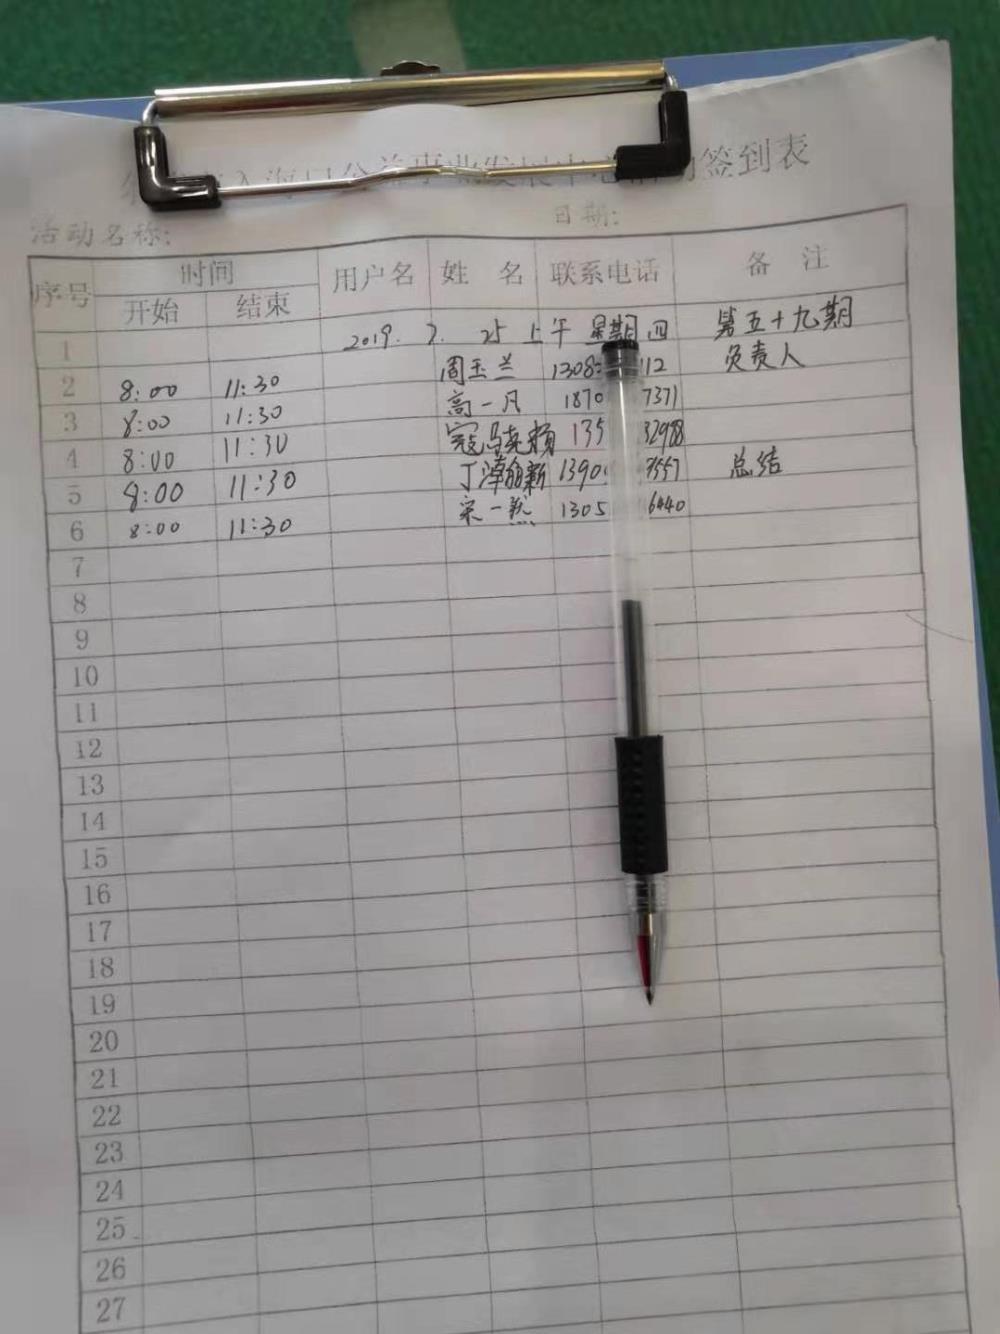 签到表
活动名称: 日期:
序号 时间 用户名 姓 名 联系电话 备 注
开始 结束
1 2019. 7. 25 上午 星期四 第五十九期
2 8:00 11:30 周玉兰 1308 112 负责人
3 8:00 11:30 高一凡 1870 7371
4 8:00 11:30 135 32988
5 8:00 11:30 1390 7557 总结
6 8:00 11:30 宋一然 1305 6440
7
8
9
10
11
12
13
14
15
16
17
18
19
20
21
22
23
24
25
26
27